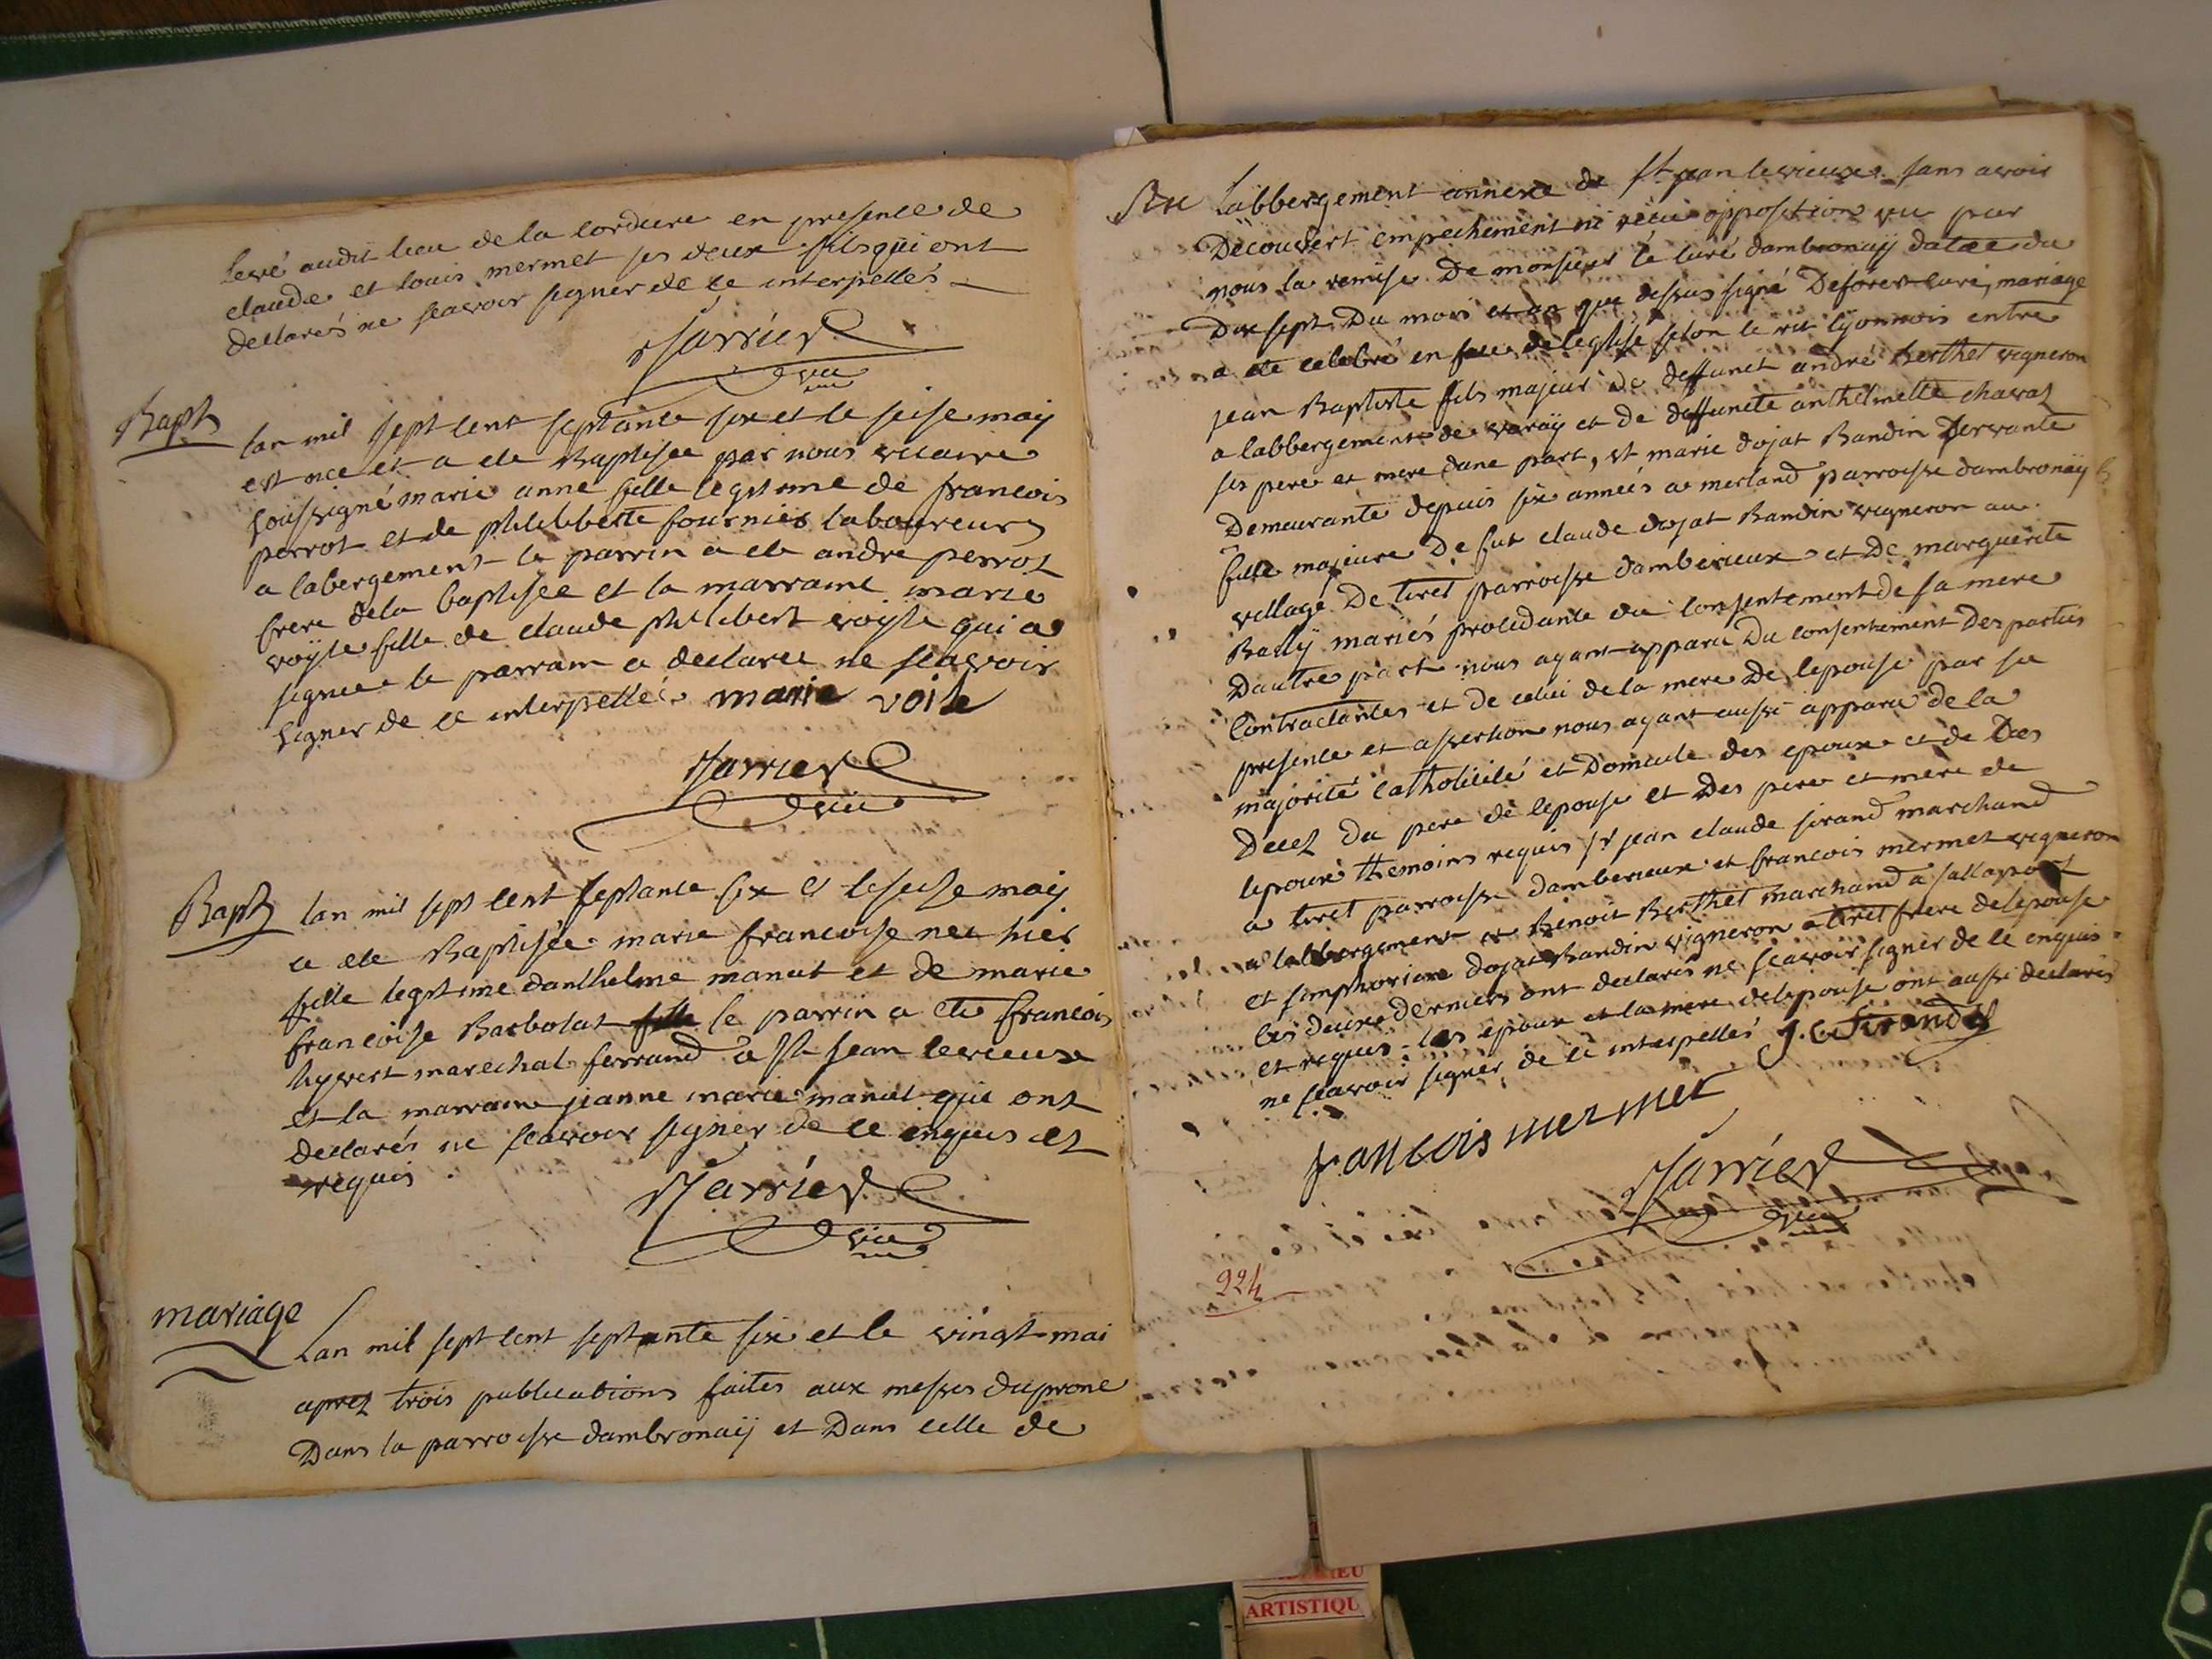 levé audit lieu de la cordiere en presence de
claude et louis mermet ses deux fils qui ont
declarés ne scavoir signer de ce interpellés
Jarrier
vic
Bapt
lan mil sept cent septante six et le seise maij
est nee et a ete Baptisée par nous vicaire
soussigné marie anne fille legitime de francois
perrot et de philibberte fournier laboureurs
a labergement le parrin a ete andre perrot
frere dela baptisée et la marraine marie
voyle fille de claude philibert voyle qui a
signee le parrain a declaree ne scavoir
signer de ce interpellé marie voile
Jarrier
vic
Bapt
lan mil sept cent septante six et le seise maij
a ete Baptisée marie francoise nee hier
fille legitime danthelme manut et de marie
francoise Barbolat fille le parrin a ete francois
hyvert marechal ferrand a St jean levieux
et la marraine jeanne marie manut qui ont
declarés ne scavoir signer de ce enquis et
requis
Jarrier
vic
mariage
Lan mil sept cent septante six et le vingt mai
aprez trois publications faites aux messes du prone
Dans la parroisse dambronaij et Dans celle de
labbergement annexe de St jean levieux sans avoir
Decouvert empechement ni recu opposition vu par
nous la remise De monsieur le curé dambronaij datée du
Dix sept Du mois et an que dessus signé Deforest curé, mariage
a ete celebré en face de leglise selon le rit lyonnois entre
jean Baptiste fils majeur de deffunct andré Berthet vigneron
a labbergement de varaij et de deffuncte anthelmette chavat
ses pere et mere dune part, et marie dojat Bandin servante
Demeurante depuis six années a merland parroisse dambronaij
fille majeure De fut claude dojat Bandin vigneron au
village De tiret parroisse damberieux et De marguerite
Bally mariés procedante du consentement de sa mere
Dautre part nous ayant apparu Du consentement Des parties
contractantes et de celui de la mere De lepouse par sa
presence et assertion nous ayant aussi apparu de la
majorité catholicité et Domicile des epoux et de Des
Decez Du pere de lepouse et Des pere et mere de
lepoux themoins requis sr jean claude sirand marchand
a tiret parroisse damberieux et francois mermet vigneron
a labbergement et Benoit Berthet marchand a sallaport
et simphorien dojat Bandin vigneron a tiret frere de lepouse
les deux derniers ont declarés ne scavoir signer de ce enquis
et requis les epoux et la mere de lepouse ont aussi declarés
ne scavoir signer de ce interpellés J. C. Sirand
francois mermet
Jarrier
vic
224
ARTISTIQU